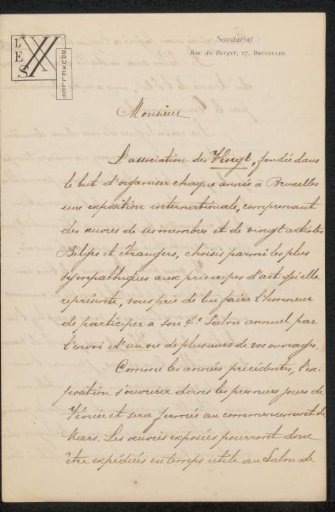 LES XX
BRUXELLES
Secrétariat :
Rue du Berger, 27, BRUXELLES.
Monsieur
L'association des Vingt, fondée dans
le but d'organiser chaque année à Bruxelles
une exposition internationale, comprenant
des œuvres de ses membres et de vingt artistes
Belges et étrangers, choisis parmi les plus
sympathiques aux principes d'art qu'elle
représente, vous prie de lui faire l'honneur
de participer à son Salon annuel par
l'envoi d'une ou de plusieurs de vos ouvrages.
Comme les années précédentes, l'ex-
position s'ouvrira dans les premiers jours de
Février et sera fermée au commencement de
Mars. Les œuvres exposées pourront donc
être expédiées en temps utile au Salon de